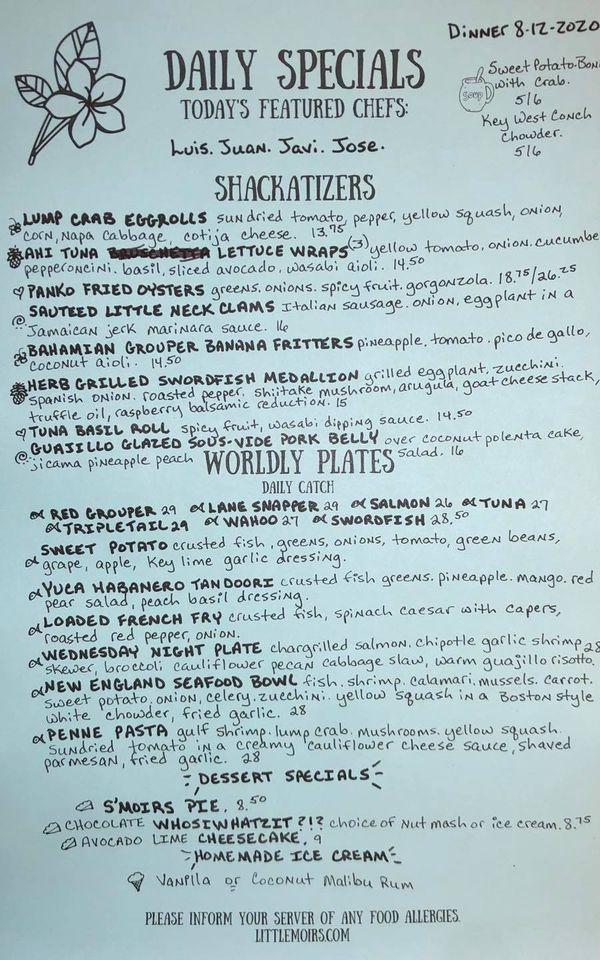 Dinner 8-12-2020
DAILY SPECIALS
TODAY'S FEATURED CHEFS:
Luis. Juan. Javi. Jose.
Soup
Sweet Potato.
with Crab.
5/6
Key West Conch
Chowder.
5/6
SHACKATIZERS
LUMP CRAB EGGROLLS sundried tomato, pepper, yellow squash, onion,
corn, napa cabbage, cotija cheese. 13.75
AHI TUNA LETTUCE WRAPS (3) yellow tomato, onion. cucumbe
pepperoncini. basil, sliced avocado, wasabi aioli. 14.50
PANKO FRIED OYSTERS greens. onions. spicy fruit. gorgonzola. 18.75/26.25
SAUTEED LITTLE NECK CLAMS Italian sausage. onion, eggplant in a
Jamaican jerk marinara sauce. 16
BAHAMIAN GROUPER BANANA FRITTERS pineapple. tomato. pico de gallo,
coconut aioli. 14.50
HERB GRILLED SWORDFISH MEDALLION grilled eggplant, zucchini.
Spanish onion. roasted pepper. shiitake mushroom, arugula, goat cheese stack,
truffle oil, raspberry balsamic reduction. 15
TUNA BASIL ROLL spicy fruit, wasabi dipping sauce. 14.50
GUAJILLO GLAZED SOUS-VIDE PORK BELLY over coconut polenta cake,
jicama pineapple peach salad. 16
WORLDLY PLATES
DAILY CATCH
RED GROUPER 29 LANE SNAPPER 29 SALMON 26 TUNA 27
TRIPLETAIL 29 WAHOO 27 SWORDFISH 28.50
SWEET POTATO crusted fish, greens, onions, tomato, green beans,
grape, apple, Key lime garlic dressing.
YUCA HABANERO TANDOORI crusted fish greens. pineapple. mango. red
pear salad, peach basil dressing.
LOADED FRENCH FRY crusted fish, spinach caesar with capers,
roasted red pepper, onion.
WEDNESDAY NIGHT PLATE chargrilled salmon. chipotle garlic shrimp 28
skewer, broccoli cauliflower pecan cabbage slaw, warm guajillo risotto.
NEW ENGLAND SEAFOOD BOWL fish. shrimp. calamari. mussels. carrot.
sweet potato. onion, celery. zucchini. yellow squash in a Boston style
white chowder, fried garlic. 28
PENNE PASTA gulf shrimp. lump crab. mushrooms. yellow squash.
sundried tomato in a creamy cauliflower cheese sauce, shaved
parmesan, fried garlic. 28
DESSERT SPECIALS
S'MOIRS PIE. 8.50
CHOCOLATE WHOSIWHATZIT?!? choice of nut mash or ice cream. 8.75
AVOCADO LIME CHEESECAKE. 9
HOMEMADE ICE CREAM
Vanilla or Coconut Malibu Rum
PLEASE INFORM YOUR SERVER OF ANY FOOD ALLERGIES.
LITTLEMOIRS.COM